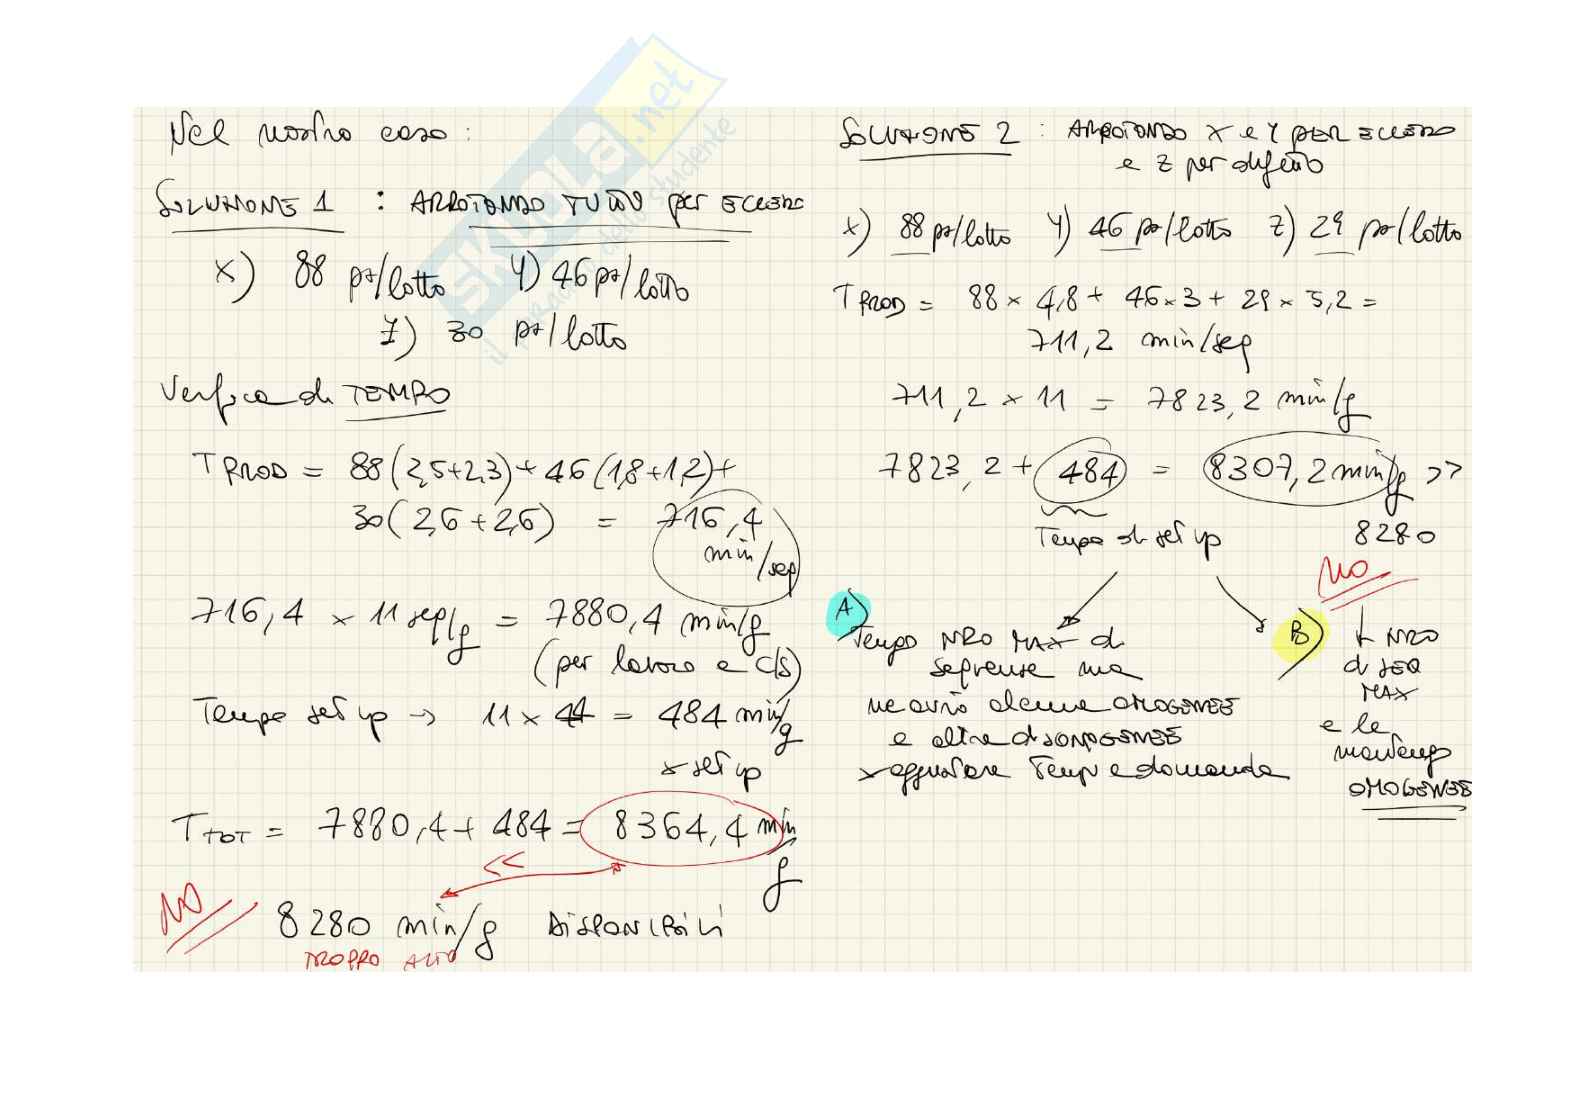 Nel nostro caso :
SOLUZIONE 1 : ARROTONDO TUTTO per ECCESSO
x) 88 pz/lotto y) 46 pz/lotto
z) 30 pz/lotto
Verifica di TEMPO
T PROD = 88(2,5+2,3)+46(1,8+1,2)+
30(2,6+2,6) = 716,4
min/seq
716,4 × 11 seq/g = 7880,4 min/g
(per lavoro e c/s)
Tempo set up → 11 × 44 = 484 min/g
x set up
T TOT = 7880,4 + 484 = 8364,4 min/g
<<
NO 8280 min/g DISPONIBILI
TROPPO ALTO
SOLUZIONE 2 : ARROTONDO X e Y PER ECCESSO
e Z per difetto
x) 88 pz/lotto y) 46 pz/lotto z) 29 pz/lotto
T PROD = 88 × 4,8 + 46 × 3 + 29 × 5,2 =
711,2 min/seq
711,2 × 11 = 7823,2 min/g
7823,2 + 484 = 8307,2 min/g >>
Tempo di set up 8280
NO
A)
Tengo NRO MAX di
sequenze ma
ne avrò alcune OMOGENEE
e altre DISOMOGENEE
x aggiustare tempi e domanda
B) ↓ NRO
di SEQ
MAX
e le
mantengo
OMOGENEE
SKUOLA.net
il paradiso dello studente